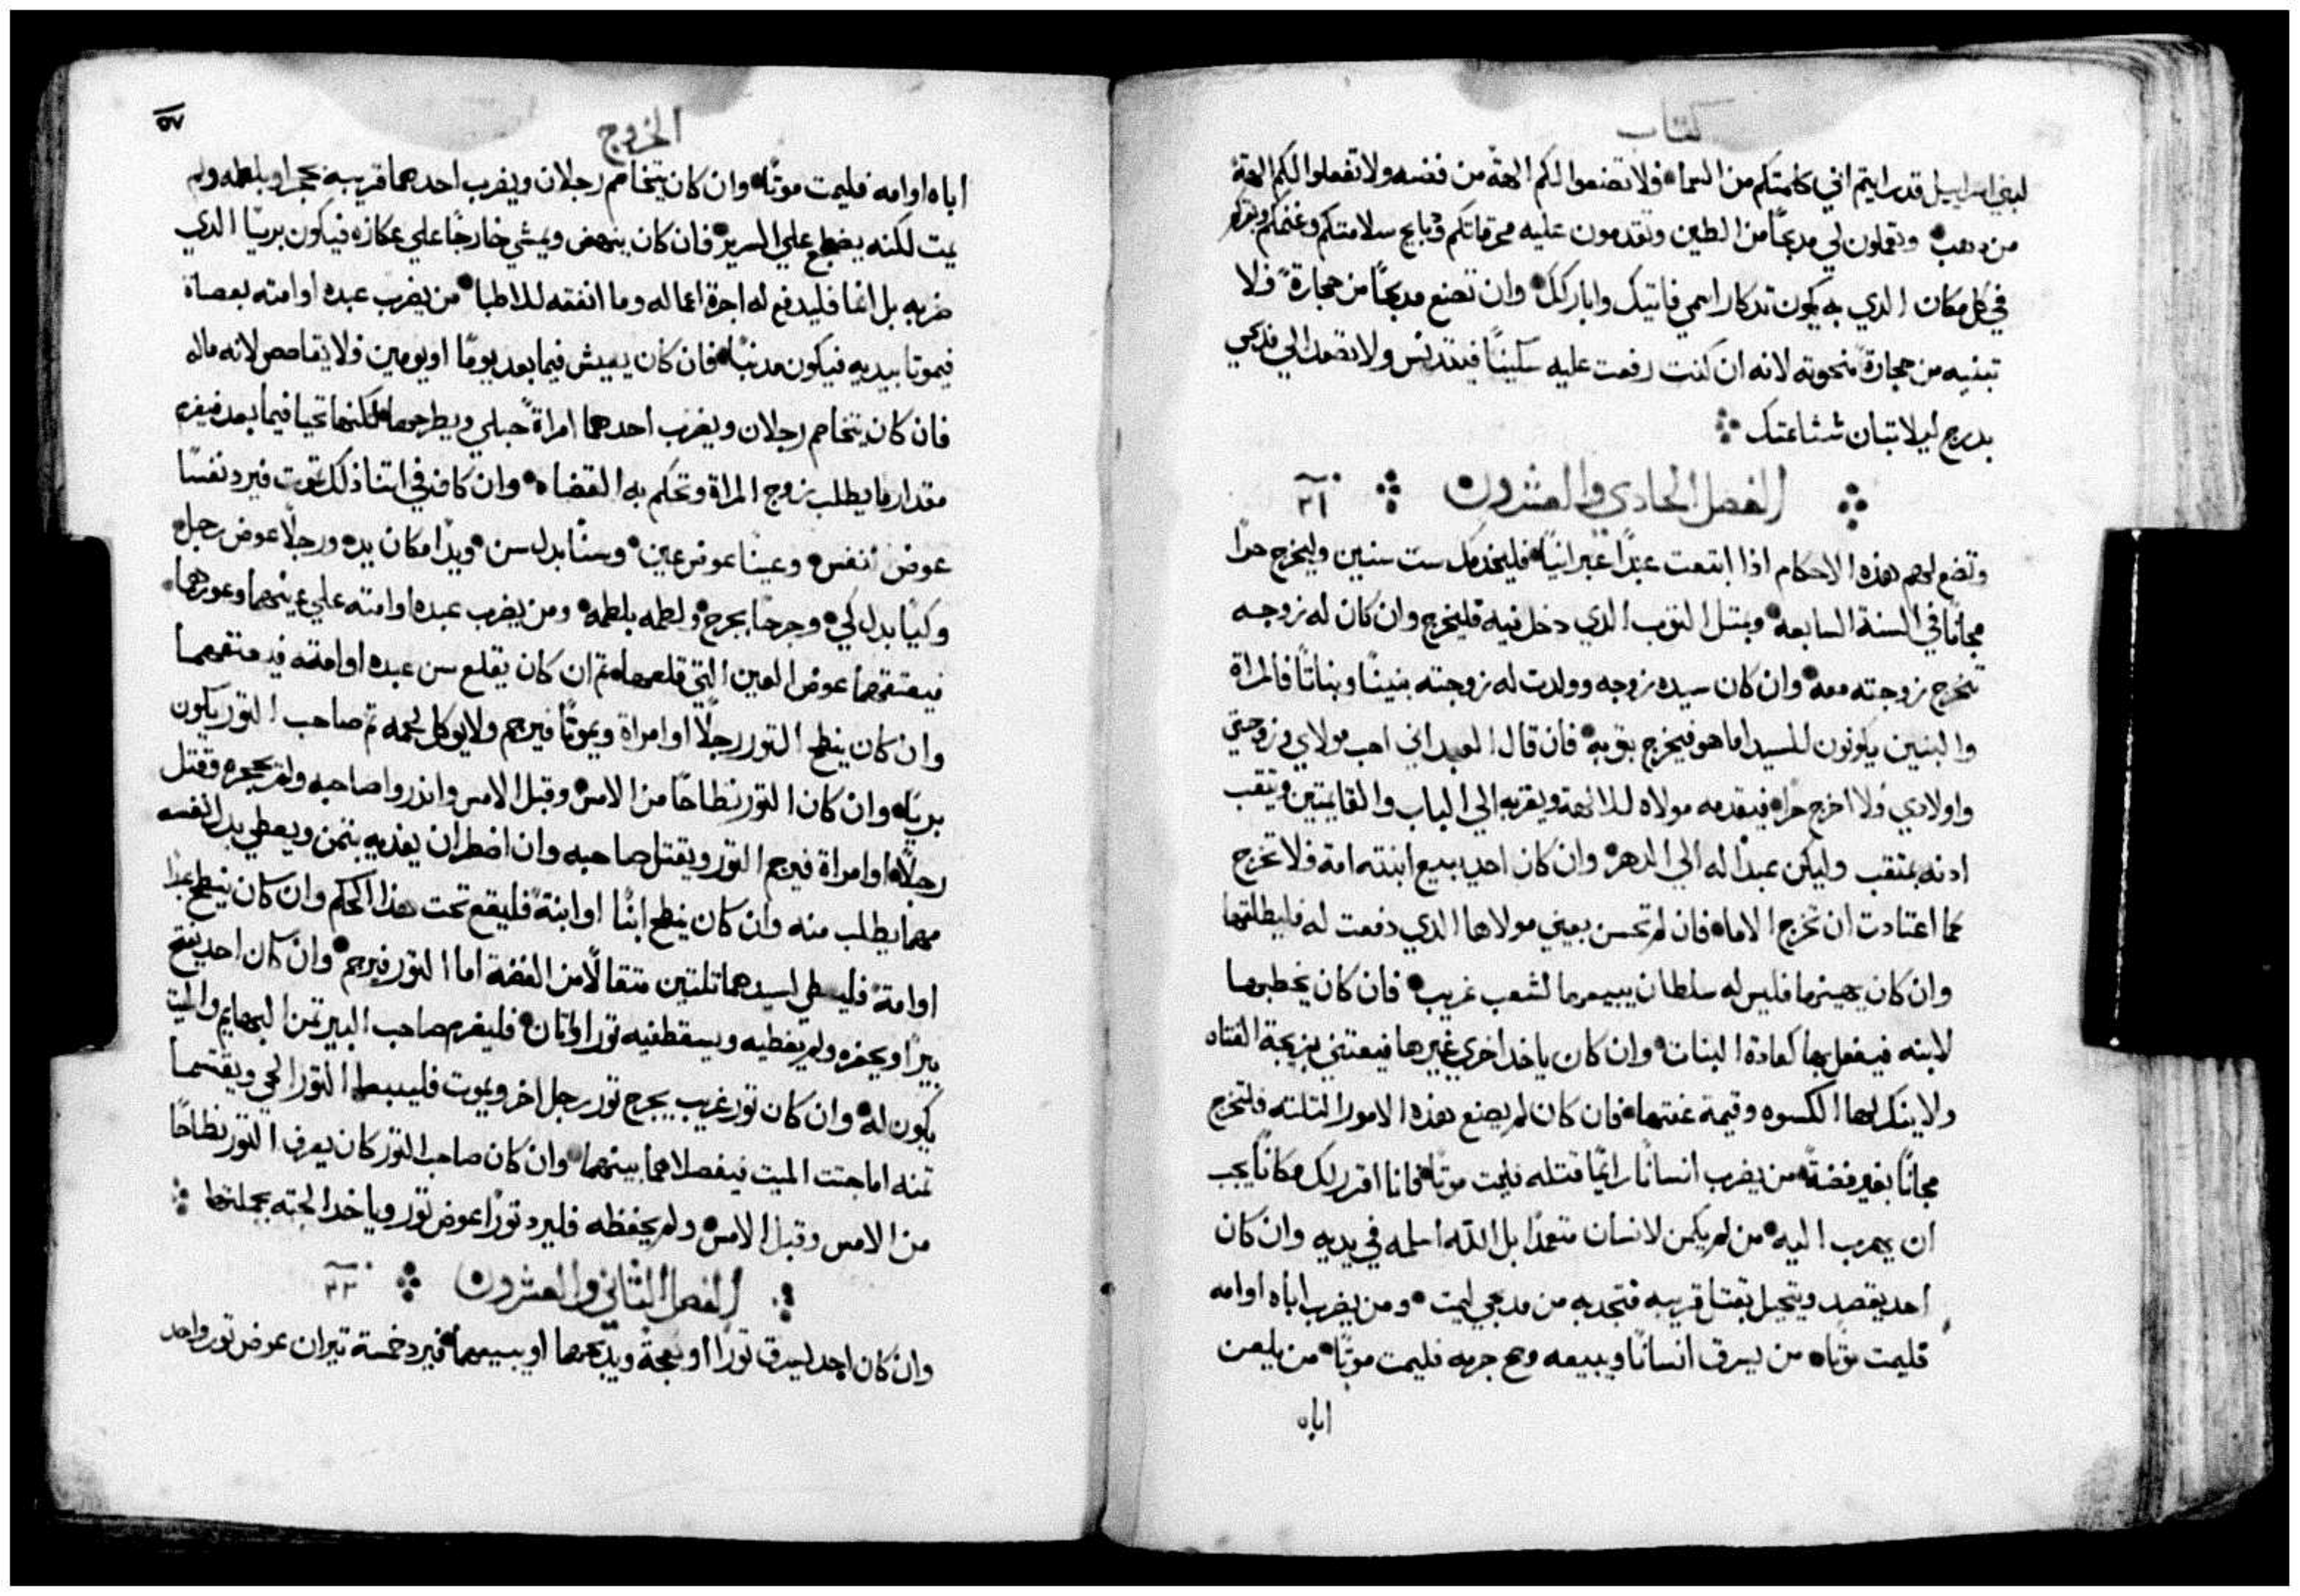 كتاب
لبني اسراييل قد رايتم اني كلمتكم من السماء فلا تصنعوا لكم الهة من فضه ولا تفعلوا لكم الهة
من دهب وتعملون لي مدبحًا من الطين وتقدمون عليه محرقاتكم ودبايح سلامتكم وغنمكم وبقركم
في كل مكان الدي به يكون تدكار اسمي فاتيك واباركك وان تصنع مدبحًا من حجارةً فلا
تبنيه من حجارةً منحوته لانه ان كنت رفعت عليه سكينًا فيتدنس ولا تصعد الي مدبحي
بدرج ليلا تبان شناعتك
الفصل الحادي والعشرون ٢١
وتضع لهم هذه الاحكام اذا ابتعت عبدًا عبرانيًا فليخدمك ست سنين وليخرج حرًا
مجانًا في السنة السابعه وبمتل التوب الدي دخل فيه فليخرج وان كان له زوجه
تخرج زوجته معه وان كان سيده زوجه وولدت له زوجته بنينًا وبناتًا فالمراة
والبنين يكونون للسيد اما هو فيخرج بتوبه فان قال العبد اني احب مولاي وزوجتي
واولادي ولا اخرج حرًا فيقدمه مولاه للالهة ويقربه الي الباب والقايمتين ويتقب
ادنه بمتقب وليكن عبدًا له الي الدهر وان كان احد يبيع ابنته امة فلا تخرج
كما اعتادت ان تخرج الاماء فان لم تحسن بعيني مولاها الدي دفعت له فليطلقها
وان كان يهينها فليس له سلطان يبيعها لشعب غريب فان كان يخطبها
لابنه فيفعل بها كعادة البنات وان كان ياخد اخري غيرها فيعتني بزيجة الفتاه
ولا ينكر لها الكسوه وقيمة عفتها فان كان لم يصنع هذه الامور التلته فلتخرج
مجانًا بغير فضةً من يضرب انسانًا رايمًا قتله فليمت موتًا فانا اقرر لك مكانًا يجب
ان يهرب اليه من لم يكمن لانسان متعمدًا بل الله اسلمه في يديه وان كان
احد يقصد ويتحيل بقتل قريبه فتجدبه من مدبحي ليمت ومن يضرب اباه او امه
فليمت موتًا من يسرق انسانًا ويبيعه وصح جرمه فليمت موتًا من يلعن
اباه
الخروج
٥٧
اباه او امه فليمت موتًا وان كان يتخاصم رجلان ويضرب احدهما قريبه بحجر او بلطمه ولم
يمت لكنه يضطجع علي السرير فان كان ينهض ويمشي خارجًا علي عكازه فيكون بريًا الدي
ضربه بل انما فليدفع له اجرة اعماله وما انفقه للاطبا من يضرب عبده او امته بعصاة
فيموتا بيديه فيكون مدنبًا فان كان يعيش فيما بعد يومًا او يومين فلا يقاصص لانه ماله
فان كان يتخاصم رجلان ويضرب احدهما امراةً حبلي ويطرحها لكنها تحيا فيما بعد فيغرم
مقدار ما يطلب زوج المراة وتحكم به القضاه وان كان في اتنا ذلك تموت فيرد نفسًا
عوض نفس وعينًا عوض عين وسنًا بدل سن ويدًا مكان يده ورجلًا عوض رجل
وكيًا بدل كي وجرحًا بجرح ولطمه بلطمه ومن يضرب عبده او امته علي عينهما وعورهما
فيعتقهما عوض العين التي قلعها تم ان كان يقلع سن عبده او امته فيعتقهما
وان كان ينطح التور رجلًا او امراة ويموتا فيرجم ولا يوكل لحمه تم صاحب التور يكون
بريًا وان كان التور نطاحًا من الامس وقبل الامس واندروا صاحبه ولم يحجره وقتل
رجلًا او امراة فيرجم التور ويقتل صاحبه وان اضطر ان يفديه بتمن ويعطي بدل نفسه
مهما يطلب منه وان كان ينطح ابنًا او ابنةً فليقع تحت هذا الحكم وان كان ينطح عبدًا
او امةً فليعطي لسيدهما تلتين متقالًا من الفضة اما التور فيرجم وان كان احد يفتح
بيرًا او يحفره ولم يغطيه ويسقط فيه تور او اتان فليغرم صاحب البير تمن البهايم والميت
يكون له وان كان تور غريب يجرح تور رجل اخر ويموت فليبيعا التور الحي ويقتسما
تمنه اما جتت الميت فيفصلاها بينهما وان كان صاحب التور كان يعرف التور نطاحًا
من الامس وقبل الامس ولم يحفظه فليرد تورًا عوض تور وياخد الجته بجملتها
الفصل الثاني والعشرون ٢٢
وان كان احد يسرق تورًا او نعجةً ويدبحها او يبيعها فيرد خمسة تيران عوض تور واحد